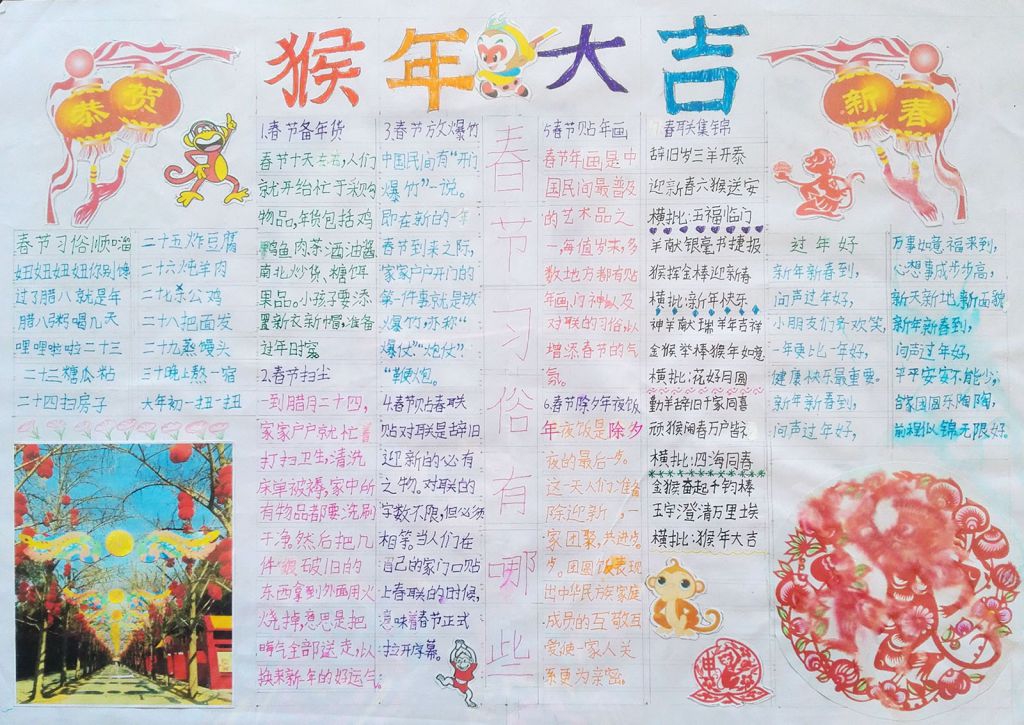 猴年大吉
恭贺
新春
春节习俗顺口溜
妞妞妞妞你别馋
过了腊八就是年
腊八粥喝几天
哩哩啦啦二十三
二十三糖瓜粘
二十四扫房子
二十五炸豆腐
二十六炖羊肉
二十七杀公鸡
二十八把面发
二十九蒸馒头
三十晚上熬一宿
大年初一扭一扭
1.春节备年货
春节十天左右,人们
就开始忙于采购
物品,年货包括鸡
鸭鱼肉茶酒油酱
南北炒货、糖饵
果品。小孩子要添
置新衣新帽,准备
过年时穿
2.春节扫尘
一到腊月二十四,
家家户户就忙着
打扫卫生,清洗
床单被褥,家中所
有物品都要洗刷
干净,然后把几
件破旧的
东西拿到外面用火
烧掉,意思是把
晦气全部送走,以
换来新年的好运气
3春节放爆竹
中国民间有“开门
爆竹”一说。
即在新的一年
春节到来之际,
家家户户开门的
第一件事就是放
爆竹,亦称“
爆仗”“炮仗”
“鞭炮。
4.春节贴春联
贴对联是辞旧
迎新的必有
之物。对联的
字数不限,但必须
相等。当人们在
自己的家门口贴
上春联的时候,
意味着春节正式
拉开序幕。
春节习俗有哪些
5春节贴年画
春节年画是中
国民间最普及
的艺术品之
一,每值岁末,多
数地方都有贴
年画、门神以及
对联的习俗,以
增添春节的气
氛。
6.春节除夕年夜饭
年夜饭是除夕
夜的最后一步。
这一天人们准备
除迎新,一
家团聚,共进
团圆饭表现
出中华民族家庭
成员的互敬互
爱使一家人关
系更为亲密。
7.春联集锦
辞旧岁三羊开泰
迎新春六猴送安
横批:五福临门
羊献银毫书捷报
猴挥金棒迎新春
横批:新年快乐
神羊献瑞羊年吉祥
金猴举棒猴年如意
横批:花好月圆
勤羊辞旧千家同喜
顽猴闹春万户皆
横批:四海同春
金猴奋起千钧棒
玉宇澄清万里埃
横批:猴年大吉
过年好
新年新春到,
问声过年好,
小朋友们齐欢笑,
一年更比一年好,
健康快乐最重要。
新年新春到,
问声过年好,
万事如意福来到,
心想事成步步高,
新天新地新面貌
新年新春到,
问声过年好,
平平安安不能少,
合家团圆乐陶陶,
前程似锦无限好。